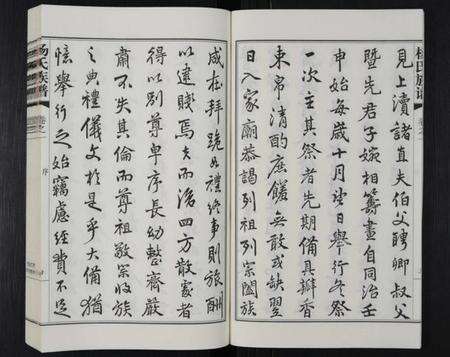 見上瀆諸直夫伯父聘卿叔父
暨先君子婉相籌畫自同治壬
申始每歲十月望日舉行冬祭
一次主其祭者先期備具瓣香
束帛清酌庶饈無敢或缺翌
日入家廟恭謁列祖列宗闔族
咸在拜跪如禮終事則旅酬
以逮賤焉夫而後四方散處者
得以別尊卑序長幼整齊嚴
肅不失其倫而尊祖敬宗收族
之典禮儀文於是乎大備猶
憶舉行之始竊慮經費不足
楊氏族譜
卷之
序